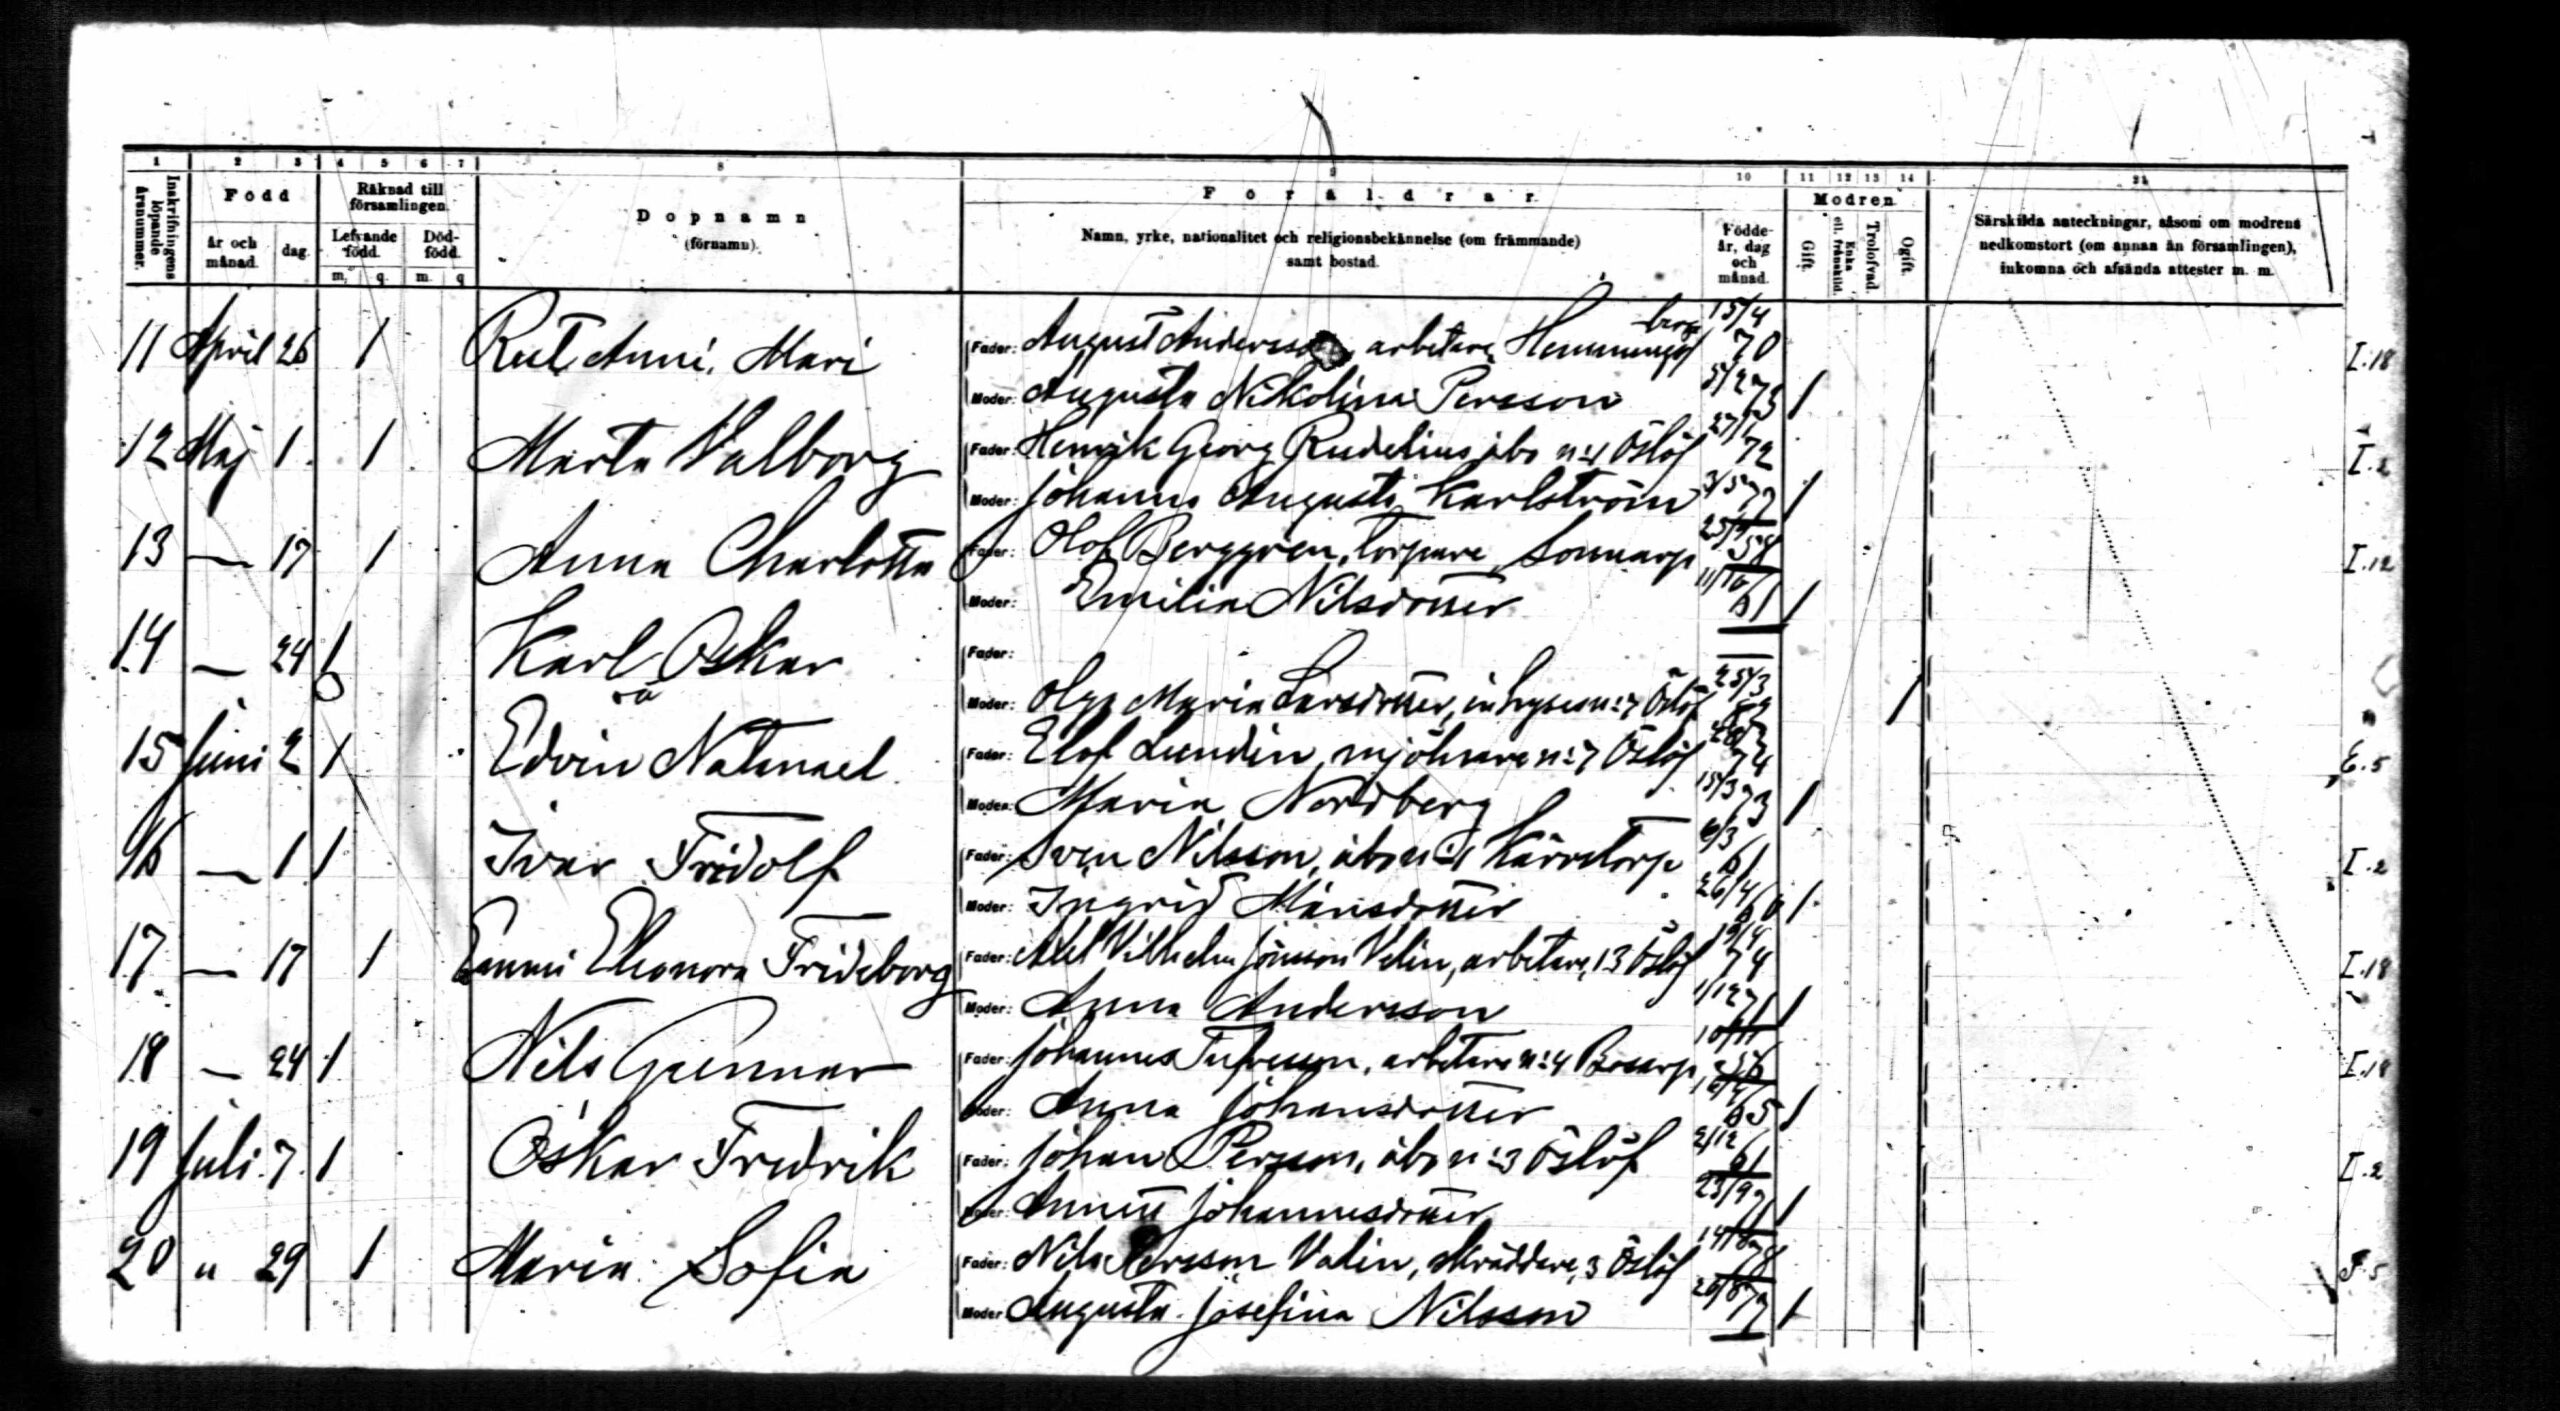 1 2 3 4 5 6 7 8 9 10 11 12 13 14 21
Inskrifningens löpande årsnummer.
Född
år och månad. dag.
Räknad till församlingen.
Lefvande född. Död-född.
m. q. m. q
Dopnamn
(förnamn).
Föräldrar.
Namn, yrke, nationalitet och religionsbekännelse (om främmande)
samt bostad.
Födde-år, dag och månad.
Modren
Gift.
Enka ell. frånskild.
Trolofvad.
Ogift.
Särskilda anteckningar, såsom om modrens
nedkomstort (om annan än församlingen),
inkomna och afsända attester m. m.
11 April 26 1 Rut Anni Mari Fader: August Andersson, arbetare, Hemmings- 15/4 70 I.18
berg
Moder: Augusta Nikolina Persson 5/2 73 1
12 Maj 1 1 Marta Valborg Fader: Henrik Georg Rudelius, åbo n:4 Öslöf 72 I.2
Moder: Johanna Augusta Karlström 3/5 77 1
13 — 17 1 Anna Charlotta Fader: Olof Berggren, torpare, Sonnarp 58 I.12
Moder: Emilia Nilsdotter 11/10 61 1
14 — 24 1 Karl Oskar Fader:
Moder: Olga Maria Larsdotter, inhyses n:7 Öslöf 25/3 1
15 Juni 2 1 Edvin Natanael Fader: Elof Lundin, mjölnare n:7 Öslöf 74 E.5
Moder: Maria Nordberg 15/3 73 1
16 — 1 1 Ivar Fridolf Fader: Sven Nilsson, åbo n:1 Kärrstorp 6/3 61 I.2
Moder: Ingrid Månsdotter 26/4 60 1
17 — 17 1 Emmi Eleonora Frideborg Fader: Axel Vilhelm Jönsson Velin, arbetare, 13 Öslöf 19/4 74 I.18
Moder: Anna Andersson 1/12 71 1
18 — 24 1 Nils Gunnar Fader: Johannes Tufvesson, arbetare n:4 Bosarp 56 I.18
Moder: Anna Johansdotter 65 1
19 Juli 7 1 Oskar Fredrik Fader: Johan Persson, åbo n:3 Öslöf 2/12 61 I.2
Moder: Annett Johannesdotter 23/9 71 1
20 " 29 1 Maria Sofia Fader: Nils Persson Valin, skräddare, 3 Öslöf 78
Moder: Augusta Josefina Nilsson 26/8 77 1